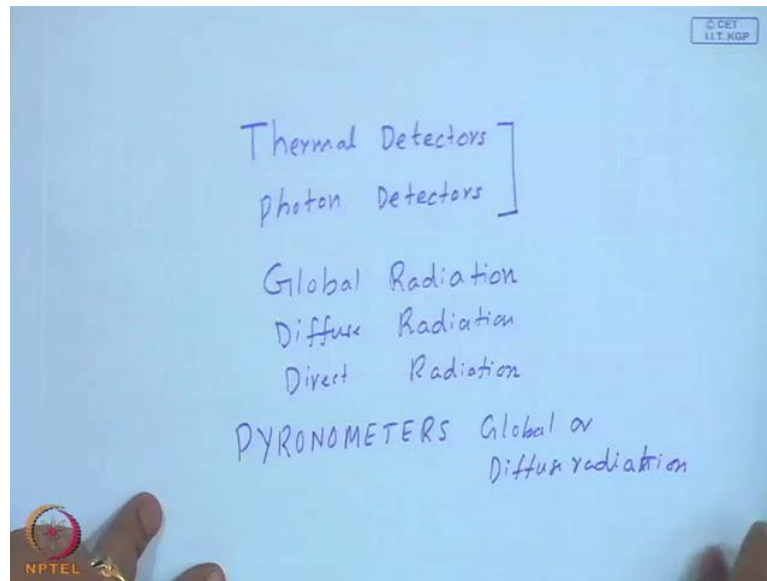 © CET
I.I.T. KGP
Thermal Detectors
Photon Detectors
Global Radiation
Diffuse Radiation
Direct Radiation
PYRONOMETERS Global or
Diffuse radiation
NPTEL